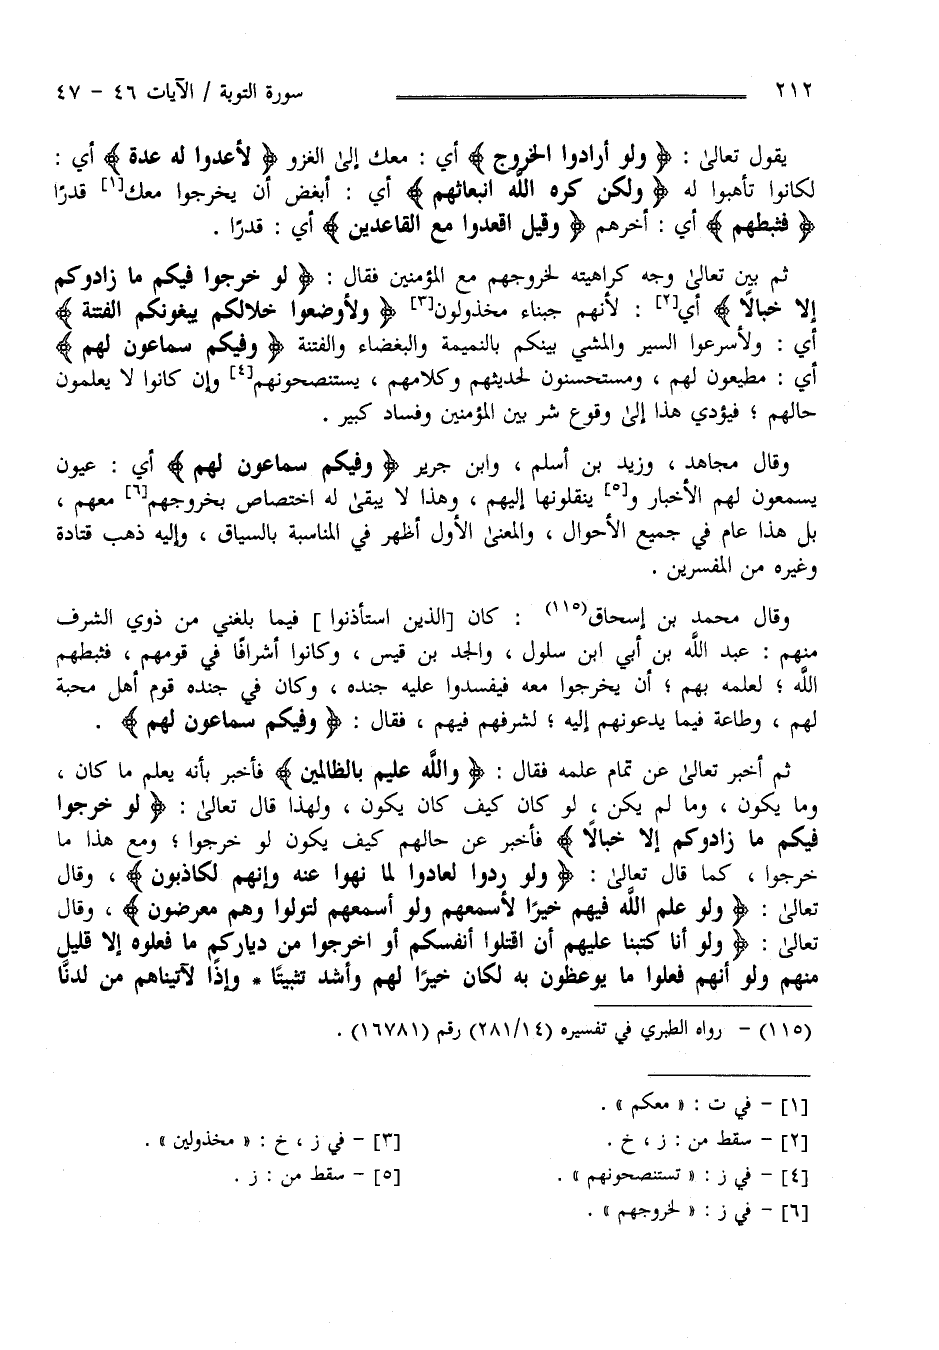 ٢١٢ سورة التوبة / الآيات ٤٦ - ٤٧
يقول تعالىٰ : ﴿ ولو أرادوا الخروج ﴾ أي : معك إلىٰ الغزو ﴿ لأعدوا له عدة ﴾ أي :
لكانوا تأهبوا له ﴿ ولكن كره اللَّه انبعاثهم ﴾ أي : أبغض أن يخرجوا معك[١] قدرًا
﴿ فثبطهم ﴾ أي : أخرهم ﴿ وقيل اقعدوا مع القاعدين ﴾ أي : قدرًا .
ثم بين تعالىٰ وجه كراهيته لخروجهم مع المؤمنين فقال : ﴿ لو خرجوا فيكم ما زادوكم
إلا خبالًا ﴾ أي[٢] : لأنهم جبناء مخذولون[٣] ﴿ ولأوضعوا خلالكم يبغونكم الفتنة ﴾
أي : ولأسرعوا السير والمشي بينكم بالنميمة والبغضاء والفتنة ﴿ وفيكم سماعون لهم ﴾
أي : مطيعون لهم ، ومستحسنون لحديثهم وكلامهم ، يستنصحونهم[٤] وإن كانوا لا يعلمون
حالهم ؛ فيؤدي هذا إلىٰ وقوع شر بين المؤمنين وفساد كبير .
وقال مجاهد ، وزيد بن أسلم ، وابن جرير ﴿ وفيكم سماعون لهم ﴾ أي : عيون
يسمعون لهم الأخبار و[٥] ينقلونها إليهم ، وهذا لا يبقىٰ له اختصاص بخروجهم[٦] معهم ،
بل هذا عام في جميع الأحوال ، والمعنىٰ الأول أظهر في المناسبة بالسياق ، وإليه ذهب قتادة
وغيره من المفسرين .
وقال محمد بن إسحاق(١١٥) : كان [الذين استأذنوا ] فيما بلغني من ذوي الشرف
منهم : عبد اللَّه بن أبي ابن سلول ، والجد بن قيس ، وكانوا أشرافًا في قومهم ، فثبطهم
اللَّه ؛ لعلمه بهم ؛ أن يخرجوا معه فيفسدوا عليه جنده ، وكان في جنده قوم أهل محبة
لهم ، وطاعة فيما يدعونهم إليه ؛ لشرفهم فيهم ، فقال : ﴿ وفيكم سماعون لهم ﴾ .
ثم أخبر تعالىٰ عن تمام علمه فقال : ﴿ واللَّه عليم بالظالمين ﴾ فأخبر بأنه يعلم ما كان ،
وما يكون ، وما لم يكن ، لو كان كيف كان يكون ، ولهذا قال تعالىٰ : ﴿ لو خرجوا
فيكم ما زادوكم إلا خبالًا ﴾ فأخبر عن حالهم كيف يكون لو خرجوا ؛ ومع هذا ما
خرجوا ، كما قال تعالىٰ : ﴿ ولو ردوا لعادوا لما نهوا عنه وإنهم لكاذبون ﴾ ، وقال
تعالىٰ : ﴿ ولو علم اللَّه فيهم خيرًا لأسمعهم ولو أسمعهم لتولوا وهم معرضون ﴾ ، وقال
تعالىٰ : ﴿ ولو أنا كتبنا عليهم أن اقتلوا أنفسكم أو اخرجوا من دياركم ما فعلوه إلا قليل
منهم ولو أنهم فعلوا ما يوعظون به لكان خيرًا لهم وأشد تثبيتًا * وإذًا لآتيناهم من لدنَّا
(١١٥) - رواه الطبري في تفسيره (٢٨١/١٤) رقم (١٦٧٨١) .
[١] - في ت : « معكم » .
[٢] - سقط من : ز ، خ . [٣] - في ز ، خ : « مخذولين » .
[٤] - في ز : « تستنصحونهم » . [٥] - سقط من : ز .
[٦] - في ز : « لخروجهم » .